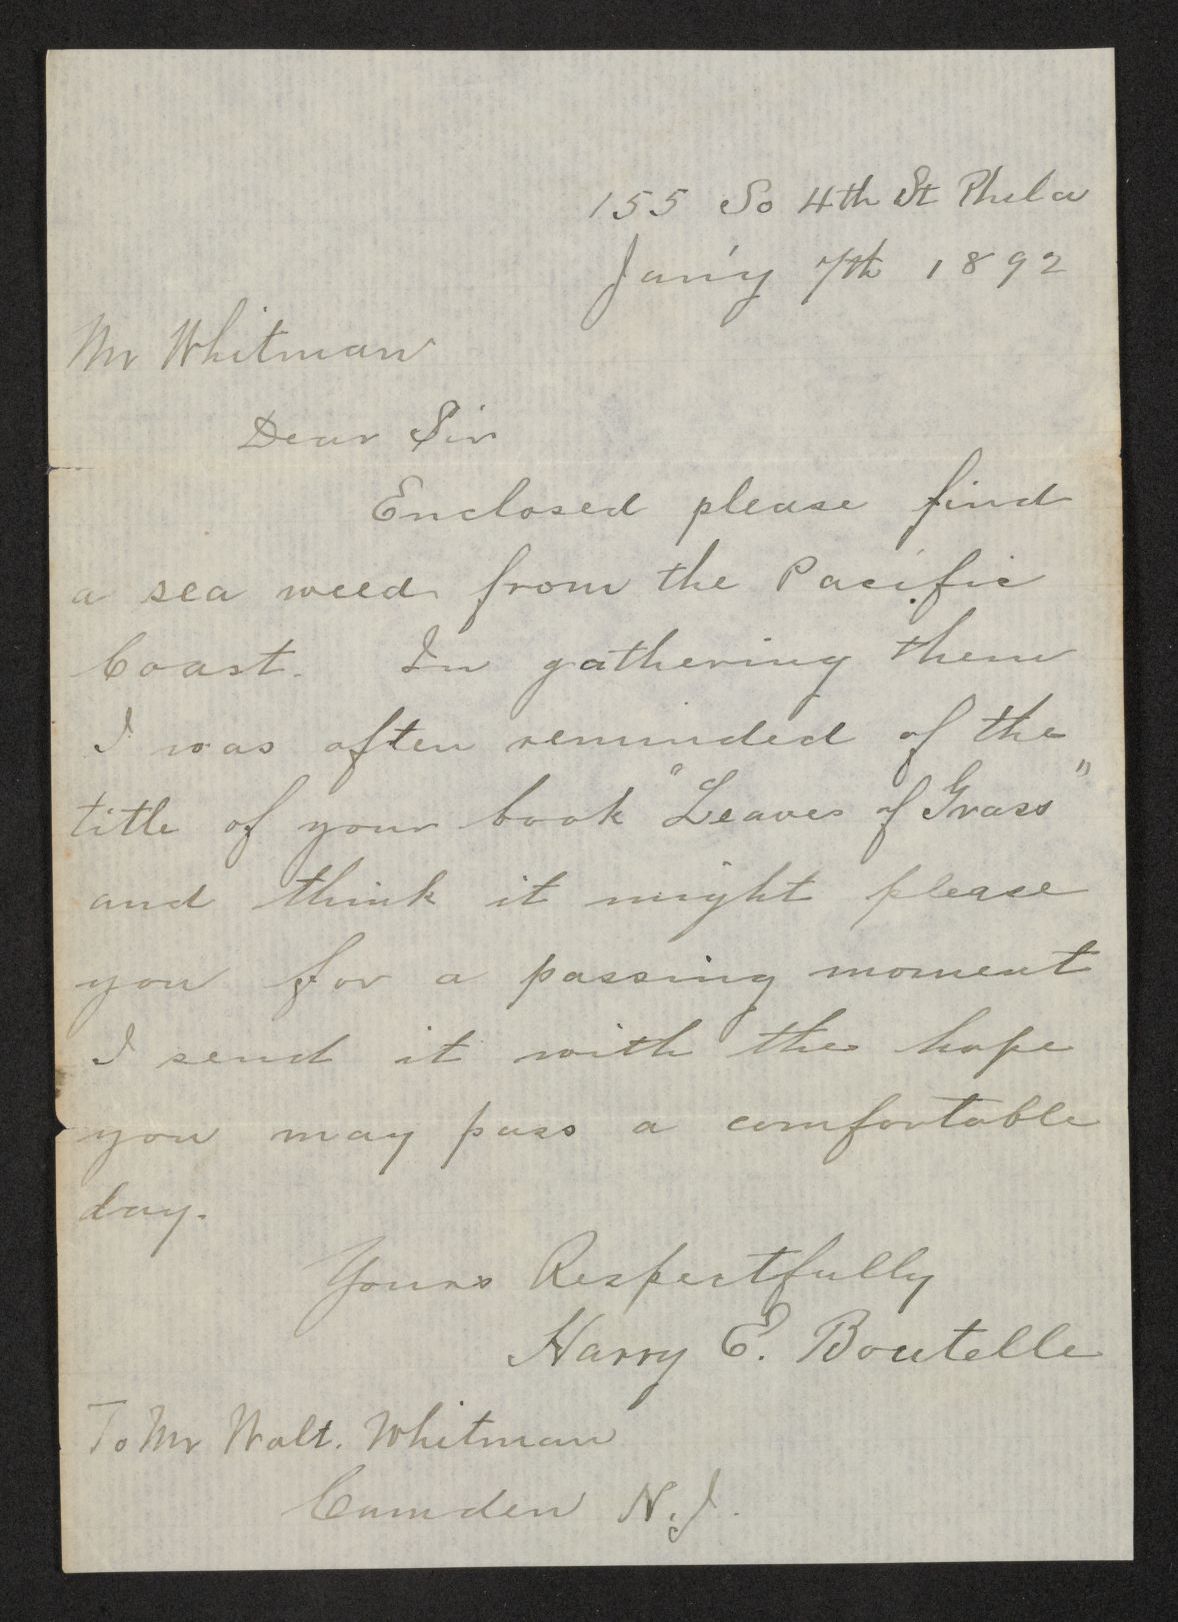 155 So 4th St Phila
Jan'y 7th 1892
Mr Whitman
Dear Sir
Enclosed please find
a sea weed from the Pacific
Coast. In gathering them
I was often reminded of the
title of your book "Leaves of Grass"
and think it might please
you for a passing moment
I send it with the hope
you may pass a comfortable
day.
Yours Respectfully
Harry E. Boutelle
To Mr Walt. Whitman
Camden N.J.